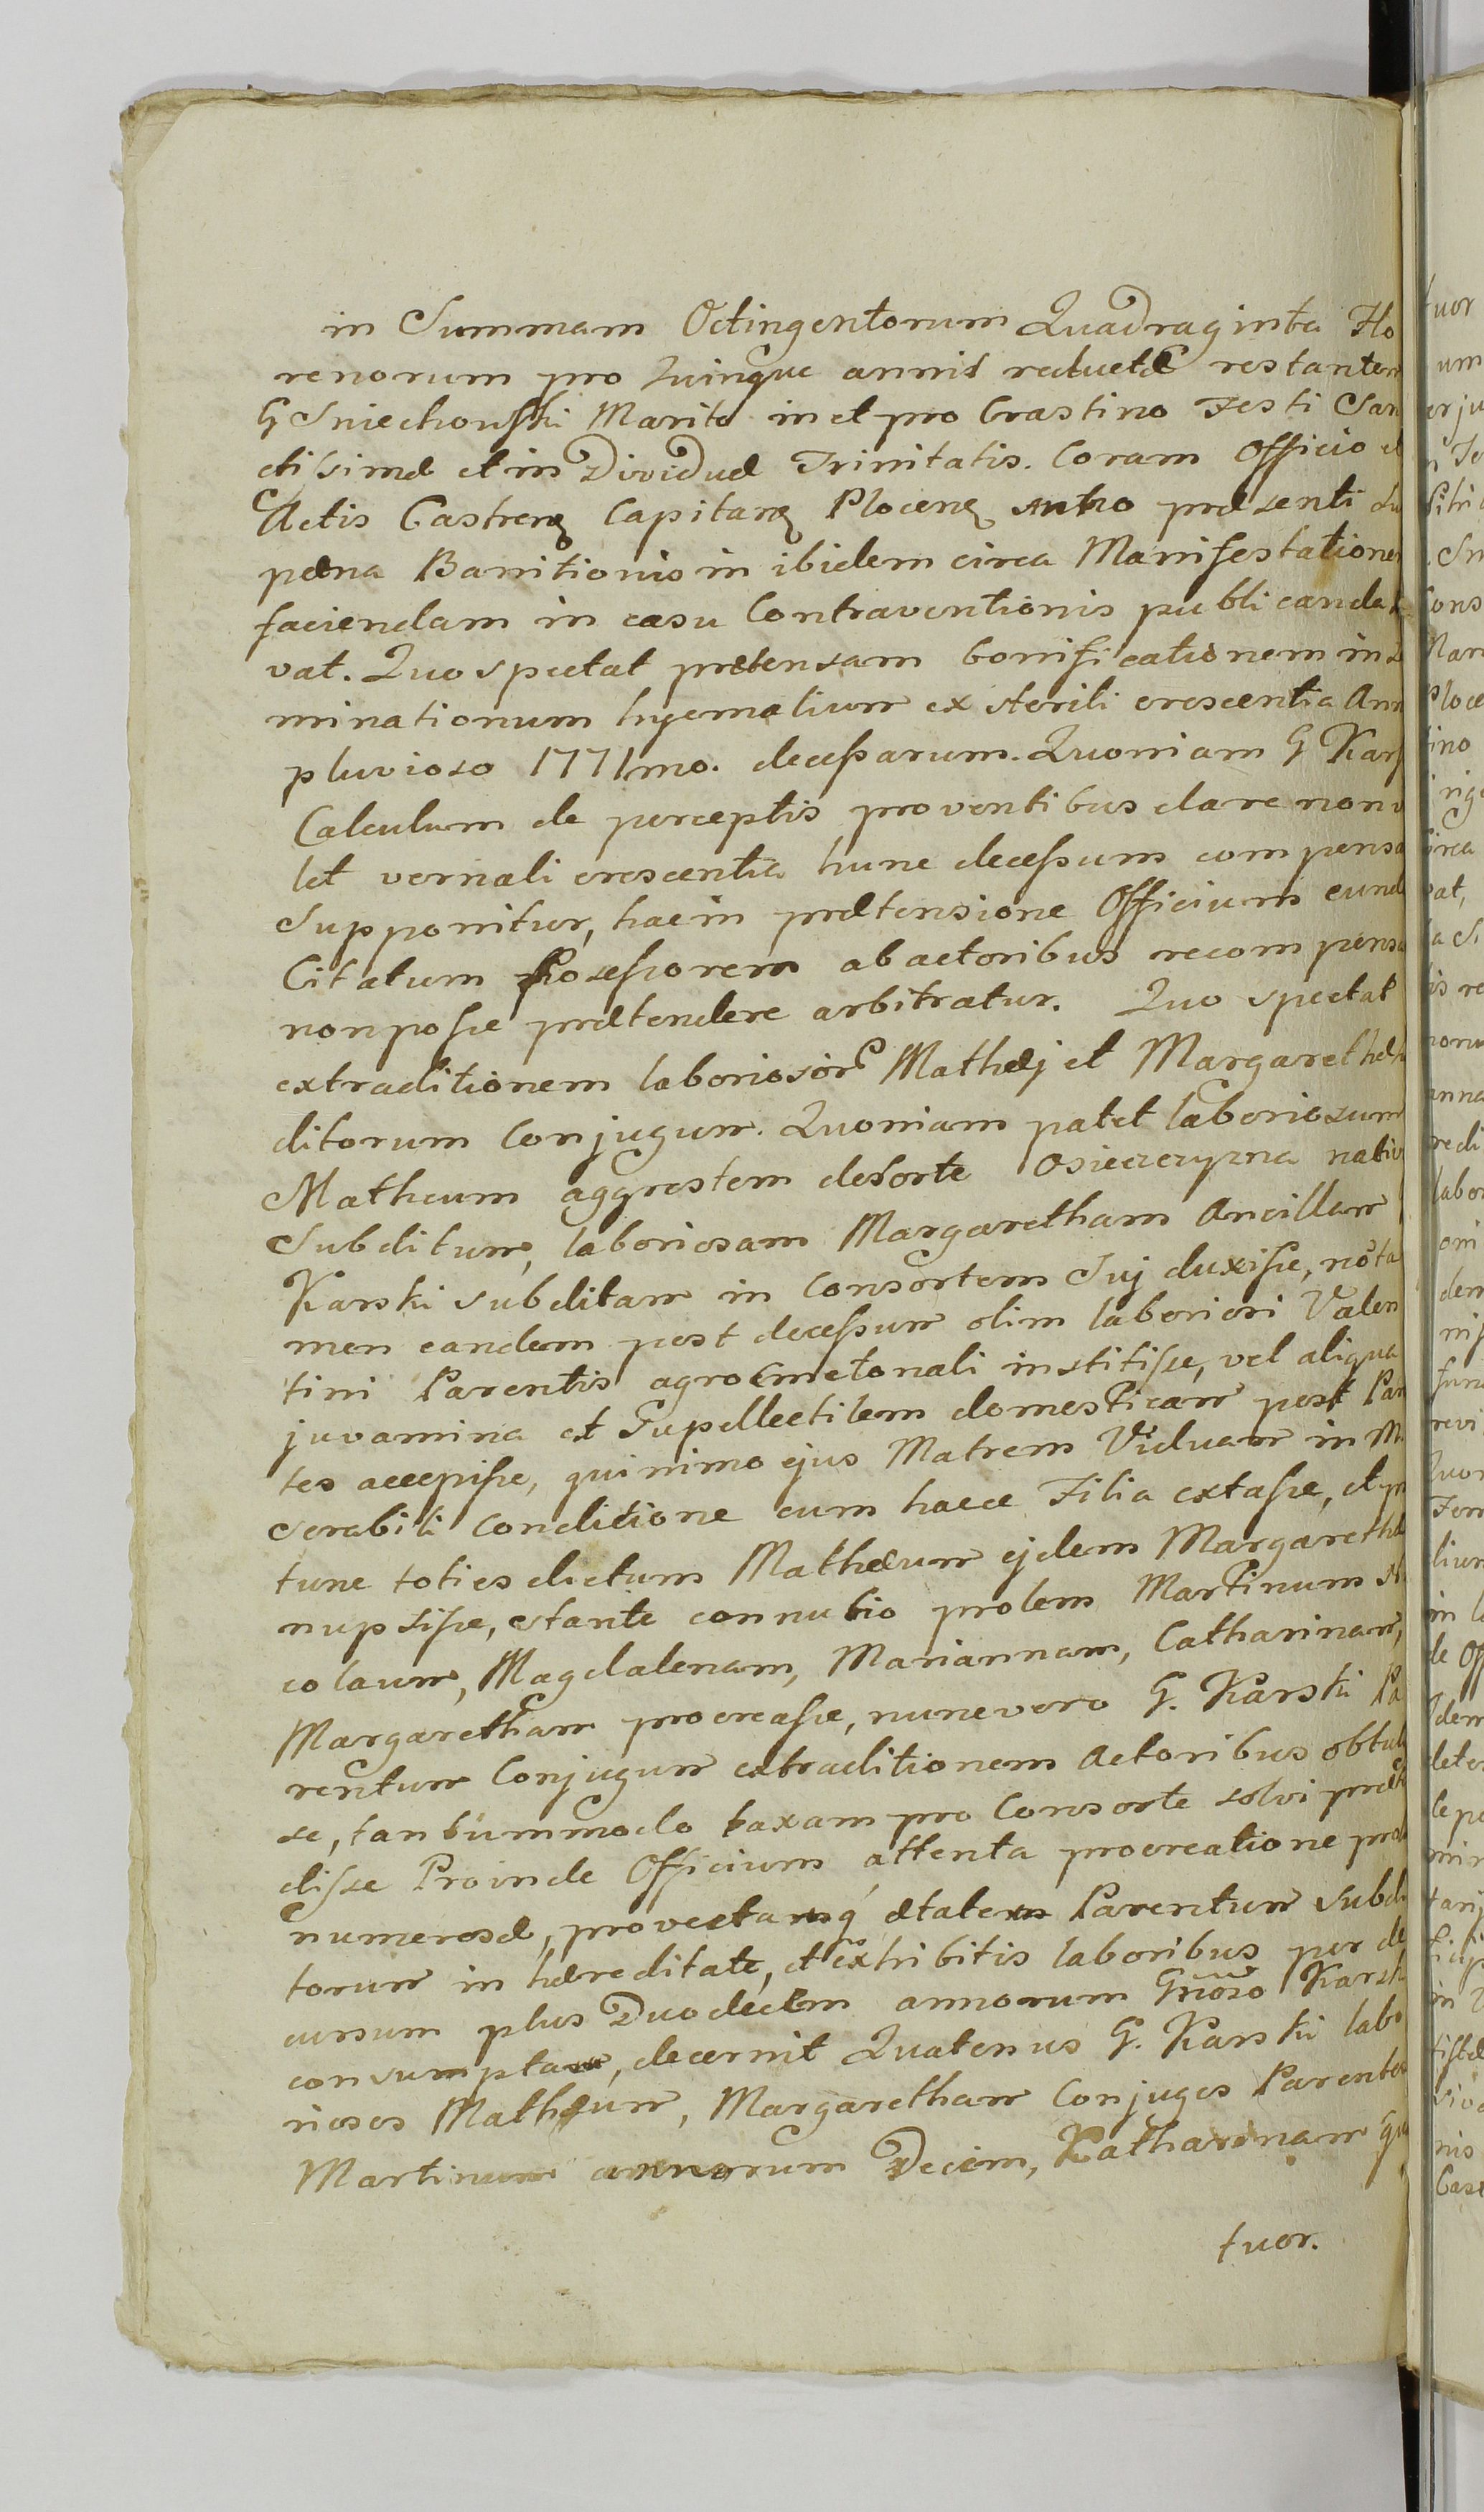 in Summam Octingentorum Quadraginta Flo
renorum pro Quinque annis reductæ restantem
G Sniechowski Marito in et pro Crastino Festi San
ctissimæ et in Dividuæ Trinitatis. Coram Officio et
Actis Castreng Capitang Ploceng præsenti su
pæna Banitionis in ibidem circa Manifestationem
faciendam in casu Contraventionis publicanda
vat. Quo spectat prætensam bonificationem in
minationum hyemalium ex sterili crescentia Ann
pluvioso 1771mo. decessarum. Quoniam G Kars
Calculum de perceptis proventibus dare non v
let vernali crescentia hunc decessum compensa
Supponitur, hac in prætensione Officium eund
Citatum Possessorem ab actoribus recompensa
non posse prætendere arbitratur. Quo spectat
extraditionem laboriosor Mathæj et Margarethæ
ditorum Conjugum. Quoniam patet laboriosum
Matheum aggrestem desorte Osieczyzna nativ
Subditum, laboriosam Margaretham Ancillam
Karski subditam in Consortem Suj duxisse, no ta
men eandem post decessum olim laboriosi Valen
tini Parentis agro Cmetonali institisse, vel aliqua
juvamina et Supellectilem domesticam post Paren
tes accepisse, quinimo ejus Matrem Viduam in Mi
serabili Conditione cum hacce Filia extasse, et
tunc toties dictum Mathæum ejdem Margarethæ
nupsisse, stante connubio prolem Martinum
colaum, Magdalenam, Mariannam, Catharinam,
Margaretham procreasse, nunc vero G. Karski Pa
rentum Conjugum extraditionem Actoribus obtulis
se, tantummodo taxam pro Consorte solvi præten
disse Proinde Officium attenta procreatione prol
numerosæ, provectamq ætatem Parentum Subdi
torum in hæreditate, et exhibitis laboribus per de
cursum plus Duodecim annorum Gnoso Karski
consumptam, decernit Quatenus G. Karski labo
riosos Mathæum, Margaretham Conjuges Parentes
Martinum annorum Decem, Katharinam qua
tuor.